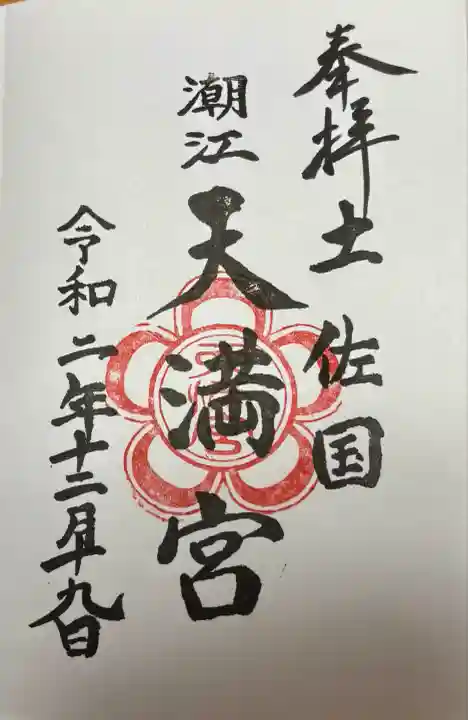 奉拝 土佐国
潮江
天満宮
令和二年十二月十九日